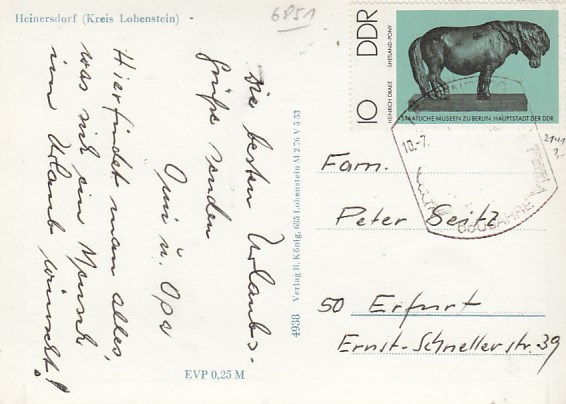 Heinersdorf (Kreis Lobenstein)
6851
Die besten Urlaubs-
grüße senden
Omi u. Opa
Hier findet man alles,
was sich ein Mensch
im Urlaub wünscht!
EVP 0,25 M
4938 Verlag B. König, 685 Lobenstein M 2 76 V 5 33
10 DDR
HEINRICH DRAKE SHETLAND-PONY
STAATLICHE MUSEEN ZU BERLIN, HAUPTSTADT DER DDR
10.-7.
650 JAHRE
2141
Fam.
Peter Seitz
50 Erfurt
Ernst-Schneller str. 39